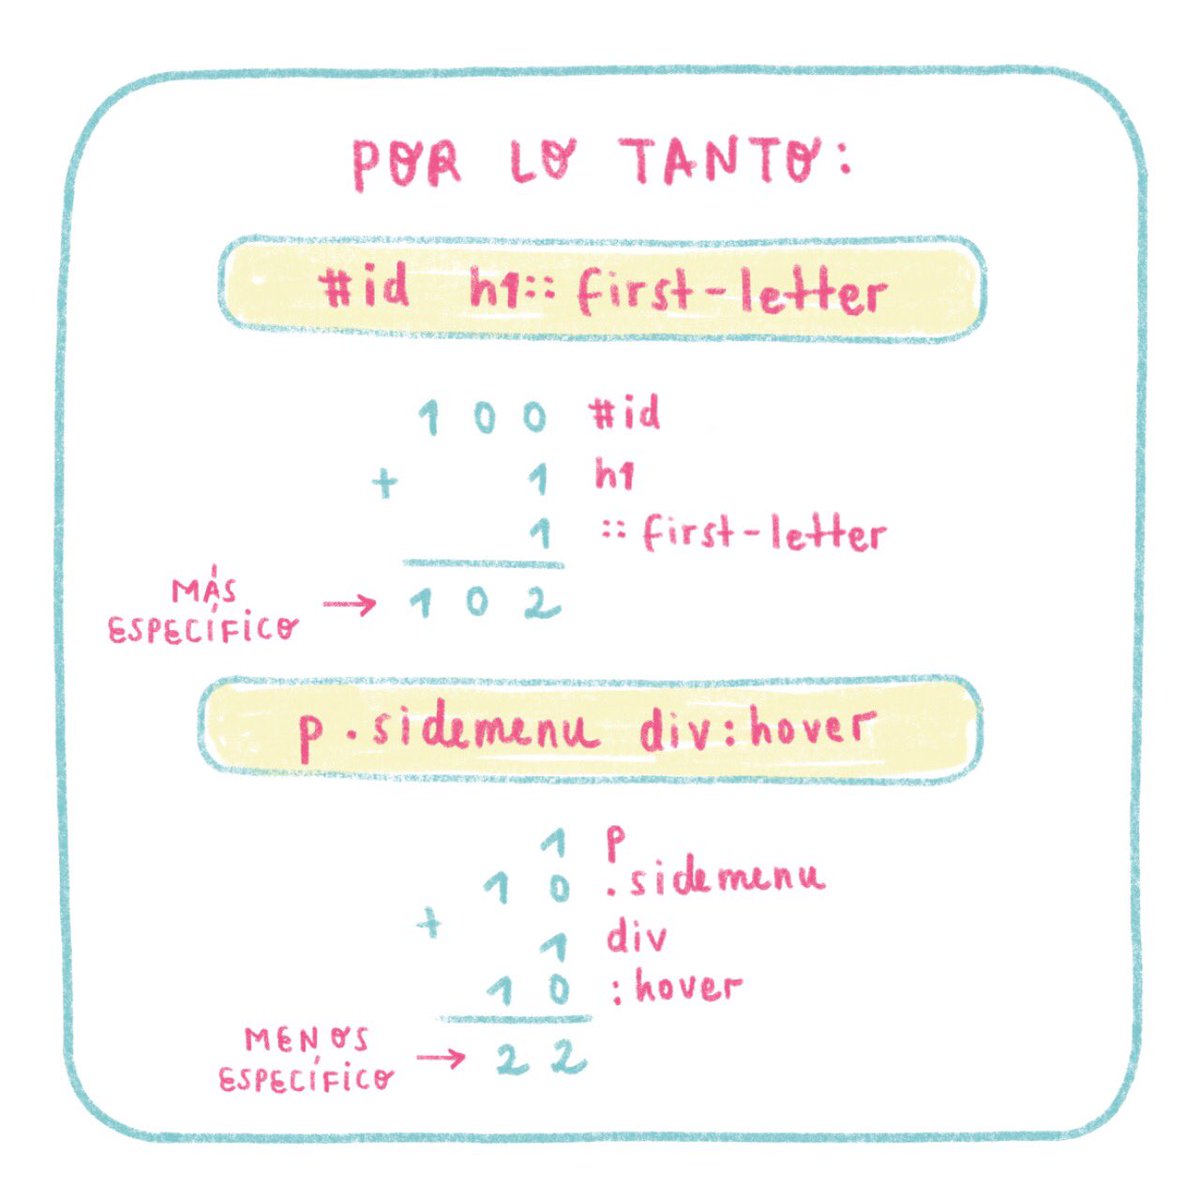 POR LO TANTO:
#id h1::first-letter
100 #id
+ 1 h1
1 ::first-letter
MÁS
ESPECÍFICO → 102
p.sidemenu div:hover
1 p
10 .sidemenu
+ 1 div
10 :hover
MENOS
ESPECÍFICO → 22